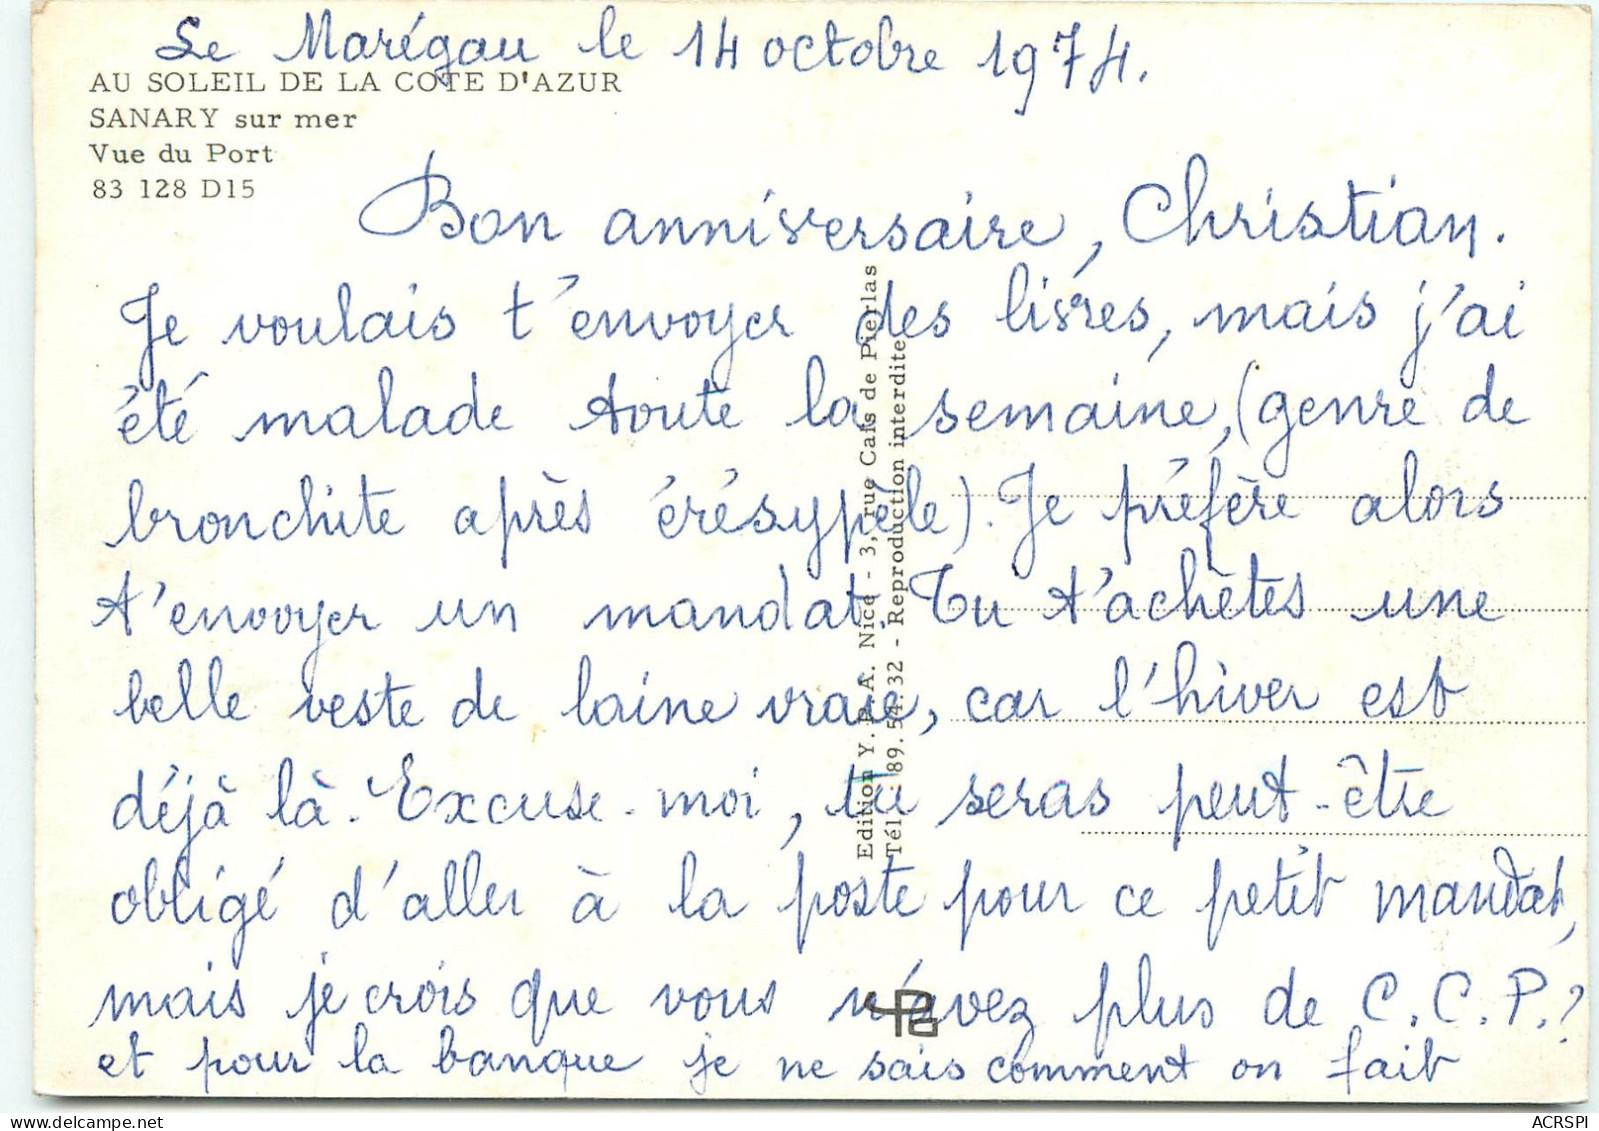 Le Marégau le 14 octobre 1974.
AU SOLEIL DE LA COTE D'AZUR
SANARY sur mer
Vue du Port
83 128 D15
Bon anniversaire, Christian.
Je voulais t'envoyer des livres, mais j'ai
été malade toute la semaine, (genre de
bronchite après érésypèle). Je préfère alors
t'envoyer un mandat. Tu t'achètes une
belle veste de laine vraie, car l'hiver est
déjà là. Excuse-moi, tu seras peut-être
obligé d'aller à la poste pour ce petit mandat,
mais je crois que vous n'avez plus de C.C.P.?
et pour la banque je ne sais comment on fait
Edition Y.P.A. Nice - 3, rue Cais de Pierlas
Tél.: 89.54.32 - Reproduction interdite
ACRSPI